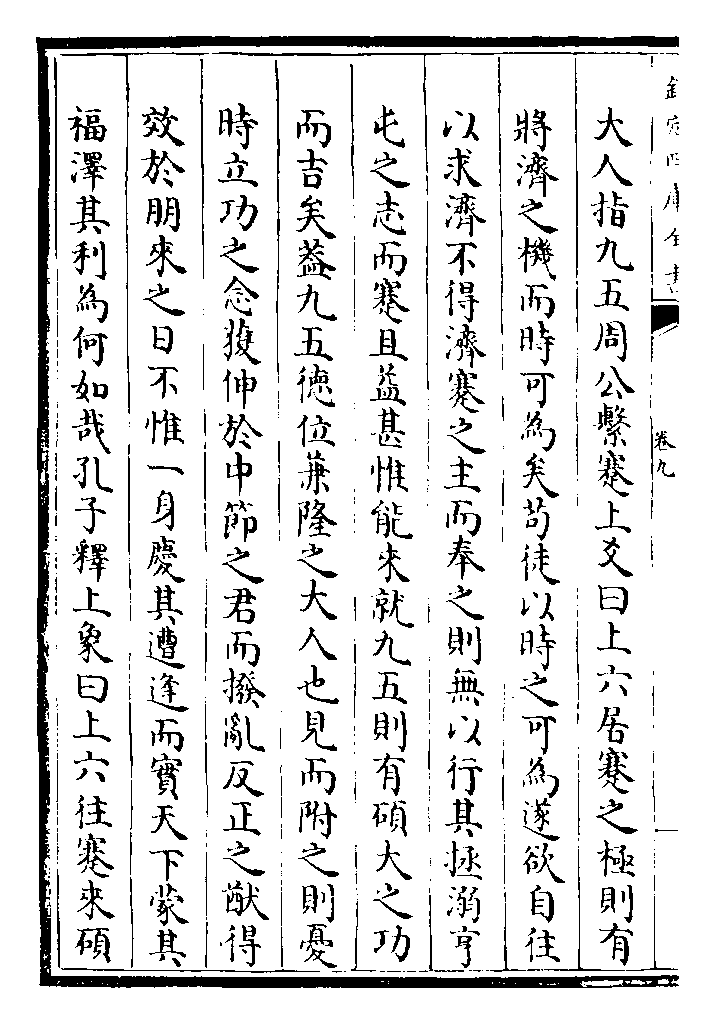 欽定四庫全書
卷九
大人指九五周公繫蹇上爻曰上六居蹇之極則有
將濟之機而時可為矣苟徒以時之可為遂欲自往
以求濟不得濟蹇之主而奉之則無以行其拯溺亨
屯之志而蹇且益甚惟能來就九五則有碩大之功
而吉矣葢九五德位兼隆之大人也見而附之則憂
時立功之念獲伸於中節之君而撥亂反正之猷得
效於朋來之日不惟一身慶其遭逢而實天下蒙其
福澤其利為何如哉孔子釋上象曰上六往蹇來碩